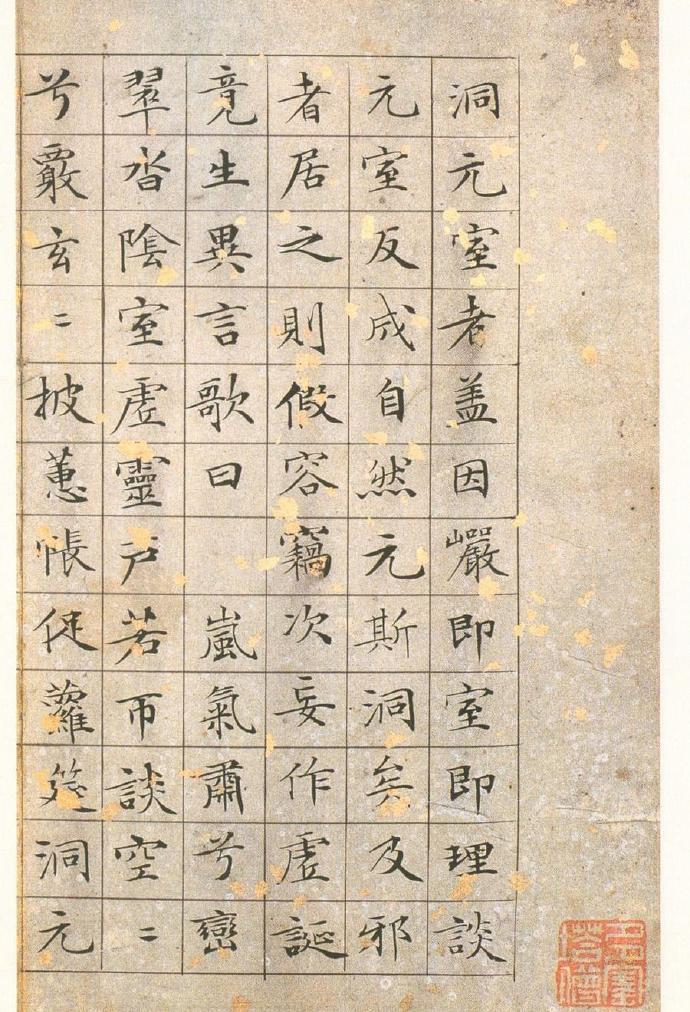 洞元室者盖因巖即室即理談
元室反成自然元斯洞矣及邪
者居之則假容竊次妄作虛誕
竟生異言歌曰 嵐氣肅兮巒
翠沓陰室虛靈戶若帀談空〻
兮覈玄〻披蕙帳促蘿筵洞元